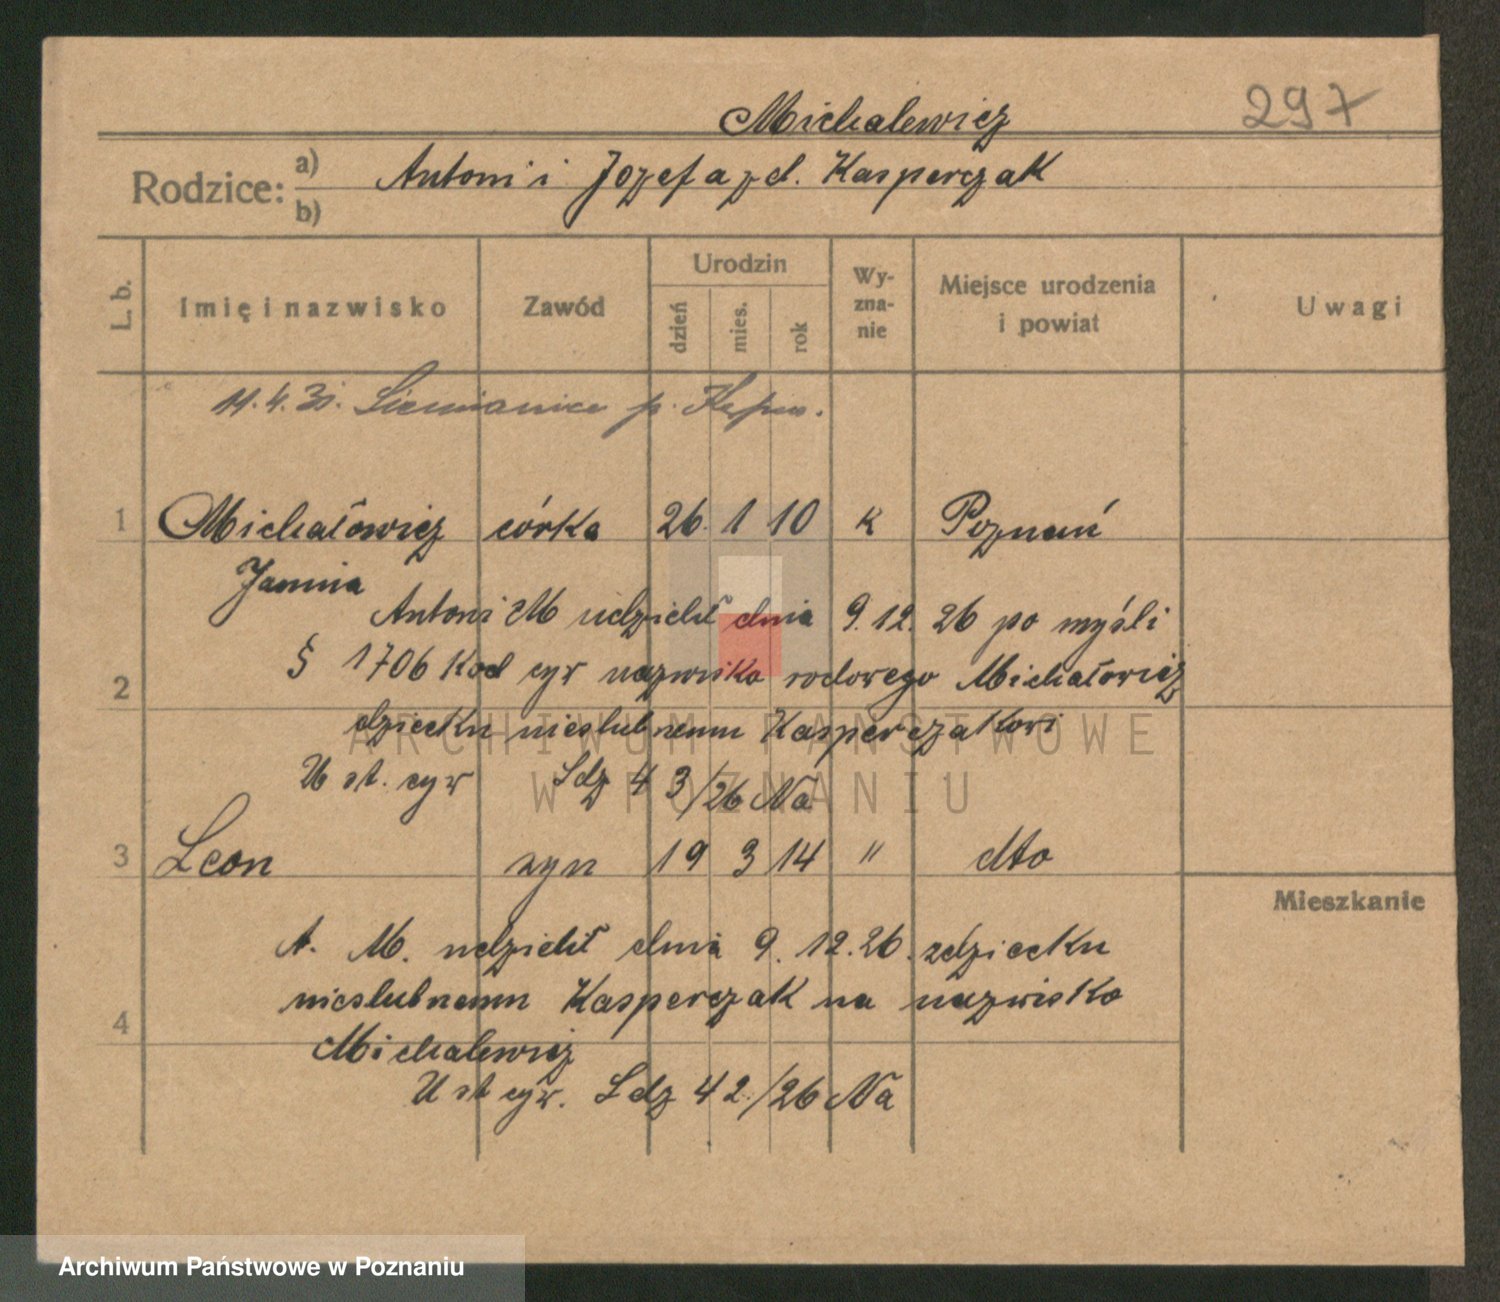 Michalewicz
297
Rodzice: a) Antoni i Jozefa zd. Kasperczak
b)
L. b.
Imię i nazwisko
Zawód
Urodzin
dzień
mies.
rok
Wy-
zna-
nie
Miejsce urodzenia
i powiat
Uwagi
11.4.31. Siemianice p. Kępno.
1 Michałowicz córka 26. 1 10 k Poznań
Janina
Antoni M udzielił dnia 9.12.26 po myśli
§ 1706 Kod cyw nazwisko rodowego Michałowicz
2
dziecku nieslubnemu Kasperczakowi
U st. cyw Ldz 43/26 Na
3 Leon syn 19 3 14 " dto
Mieszkanie
A. M. udzielił dnia 9.12.26. zdziecku
nieslubnemu Kasperczak na nazwisko
4
Michalewicz
U st cyw. Ldz 42/26 Na
ARCHIWUM PAŃSTWOWE
W POZNANIU
Archiwum Państwowe w Poznaniu